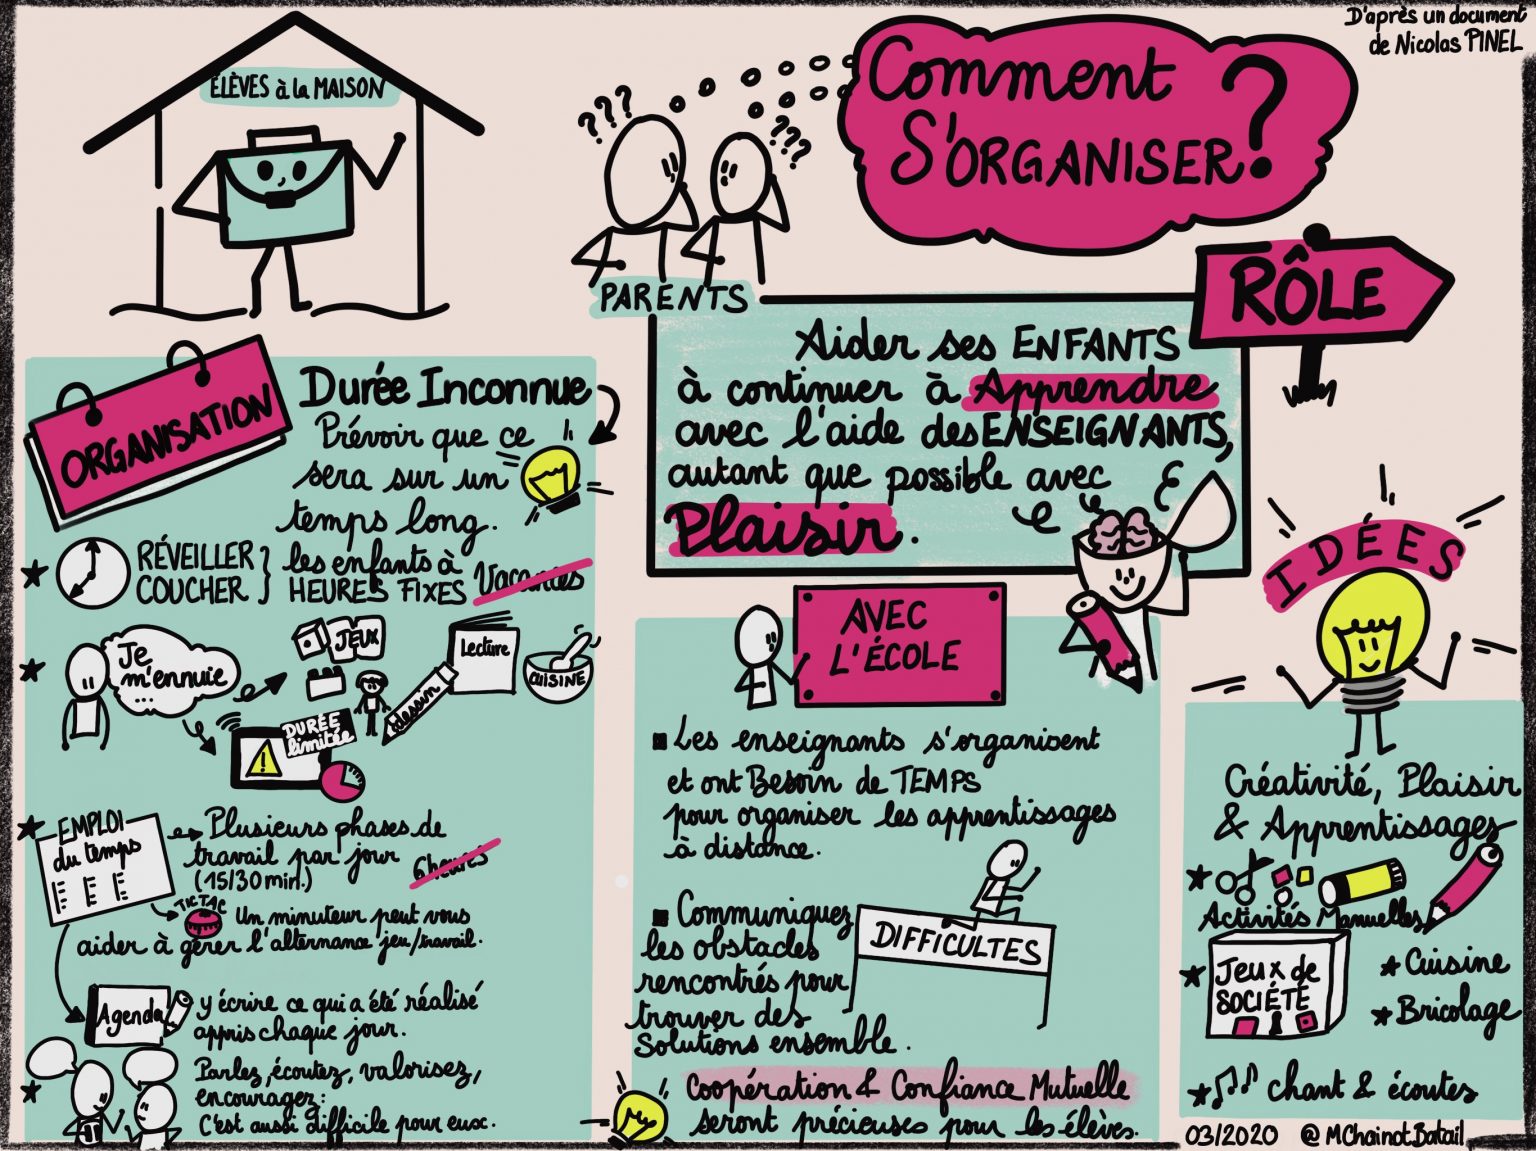 D'après un document
de Nicolas PINEL
ÉLÈVES à la MAISON
Comment
S'ORGANISER?
???
???
PARENTS
RÔLE
Aider ses ENFANTS
à continuer à Apprendre
avec l'aide des ENSEIGNANTS,
autant que possible avec
Plaisir.
ORGANISATION
Durée Inconnue
Prévoir que ce
sera sur un
temps long.
RÉVEILLER
COUCHER
les enfants à
HEURES FIXES
Vacances
Je
m'ennuie
...
JEUX
dessin
Lecture
CUISINE
DURÉE
limitée
!
EMPLOI
du temps
Plusieurs phases de
travail par jour
(15/30 min.)
6 heures
TIC TAC
Un minuteur peut vous
aider à gérer l'alternance jeu/travail.
Agenda
y écrire ce qui a été réalisé
appris chaque jour.
Parlez, écoutez, valorisez,
encouragez:
C'est aussi difficile pour eux.
AVEC
L'ÉCOLE
Les enseignants s'organisent
et ont Besoin de TEMPS
pour organiser les apprentissages
à distance.
Communiquez
les obstacles
rencontrés pour
trouver des
Solutions ensemble.
DIFFICULTES
Coopération & Confiance Mutuelle
seront précieuses pour les élèves.
IDÉES
Créativité, Plaisir
& Apprentissages
Activités Manuelles
Jeux de
SOCIÉTÉ
Cuisine
Bricolage
chant & écoutes
03/2020 @MChainotBatail